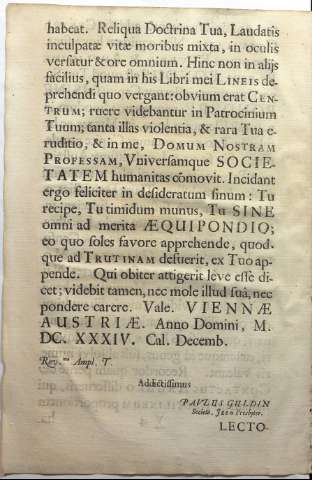 habeat. Reliqua Doctrina Tua, Laudatis
inculpatæ vitæ moribus mixta, in oculis
versatur & ore omnium. Hinc non in alijs
facilius, quam in his Libri mei LINEIS de-
prehendi quo vergant: obvium erat CEN-
TRUM; ruere videbantur in Patrocinium
Tuum; tanta illas violentia, & rara Tua e-
ruditio, & in me, DOMUM NOSTRAM
PROFESSAM, Vniversamque SOCIE-
TATEM humanitas cõmovit. Incidant
ergo feliciter in desideratum sinum: Tu
recipe, Tu timidum munus, Tu SINE
omni ad merita ÆQUIPONDIO;
eo quo soles favore apprehende, quod-
que ad TRUTINAM defuerit, ex Tuo ap-
pende. Qui obiter attigerit leve esse di-
cet; videbit tamen, nec mole illud suâ, nec
pondere carere. Vale. VIENNÆ
AUSTRIÆ. Anno Domini, M.
DC. XXXIV. Cal. Decemb.
Rev.mæ Ampl. T.
Addictissimus
PAULUS GULDIN
Societ. Jesu Presbyter.
LECTO-